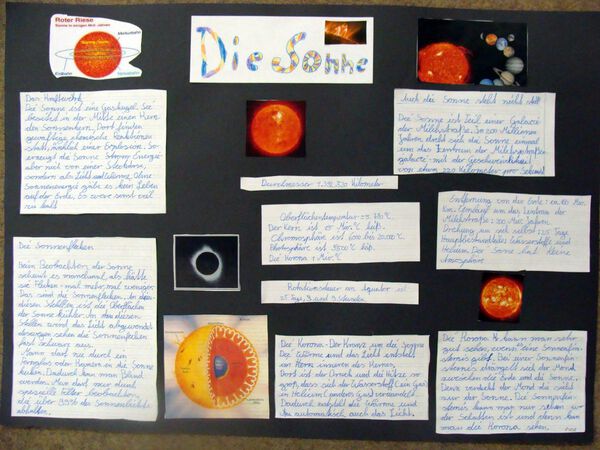 Roter Riese
Sonne in einigen Mrd. Jahren
Merkurbahn
Erdbahn
Venusbahn
Die Sonne
Das Kraftwerk
Die Sonne ist eine Gaskugel. Sie
besteht in der Mitte einen Kern
den Sonnenkern. Dort finden
gewaltige chemische Reaktionen
statt, ähnlich einer Explosion. So
erzeugt die Sonne Strom Energie
aber nicht von einer Steckdose,
sondern als Licht und Wärme. Ohne
Sonnenenergie gäbe es kein Leben
auf der Erde. Es wäre sonst viel
zu kalt
Auch die Sonne steht nicht still
Die Sonne ist Teil einer Galaxie
der Milchstraße. In 200 Millionen
Jahren dreht sich die Sonne einmal
um das Zentrum der Milchstraßen
galaxie mit der Geschwindigkeit
von etwa 220 Kilometer pro Sekund
Durchmesser Kilometer
Oberflächentemperatur
Der Kern ist 15 Mio. °C heiß.
Chromosphäre ist 6000 bis 20.000 °C
Photosphäre ist 5500 °C heiß
Die Korona 1 Mio. °C
Entfernung von der Erde: ca 150 Mio.
km. Umlauf um das Zentrum der
Milchstraße: 200 Mio. Jahren.
Drehung um sich selbst 25 Tage
Hauptbestandteile Wasserstoff und
Helium. Die Sonne hat keine
Atmosphäre
Rotationsdauer am Äquator ist
25 Tage, und 9 Stunden
Die Sonnenflecken
Beim Beobachten der Sonne
scheint es manchmal, als hätte
sie Flecken - mal mehr, mal weniger.
Das sind die Sonnenflecken. In
diesen Stellen ist die Oberfläche
der Sonne kühler. An diesen
Stellen wird das Licht abgewendet
deswegen sehen die Sonnenflecken
fast schwarz aus.
Mann darf nie durch ein
Fernglas oder Teleskop in die Sonne
kucken. Dadurch kann man Blind
werden. Man darf nur durch
spezielle Filter beobachten,
die über 99% des Sonnenlichts
abhalten.
Die Korona - Der Kranz um die Sonne
Die Wärme und das Licht entsteht
im Kern, inneren des Kerns.
Dort ist der Druck und die Hitze so
groß, dass sich der Wasserstoff (ein Gas)
in Helium (anderes Gas) verwandelt.
Dadurch entsteht die Wärme und
automatisch auch das Licht.
Die Korona kann man sehr
gut sehen, wenn eine Sonnenfin-
sternis gibt. Bei einer Sonnenfin-
sternis drängelt sich der Mond
zwischen die Erde und die Sonne.
Dann verdeckt der Mond die Sicht
zur Sonne. Die Sonnenfin-
sternis kann man nur sehen wo
der Schatten ist und dann kann
man die Korona sehen.